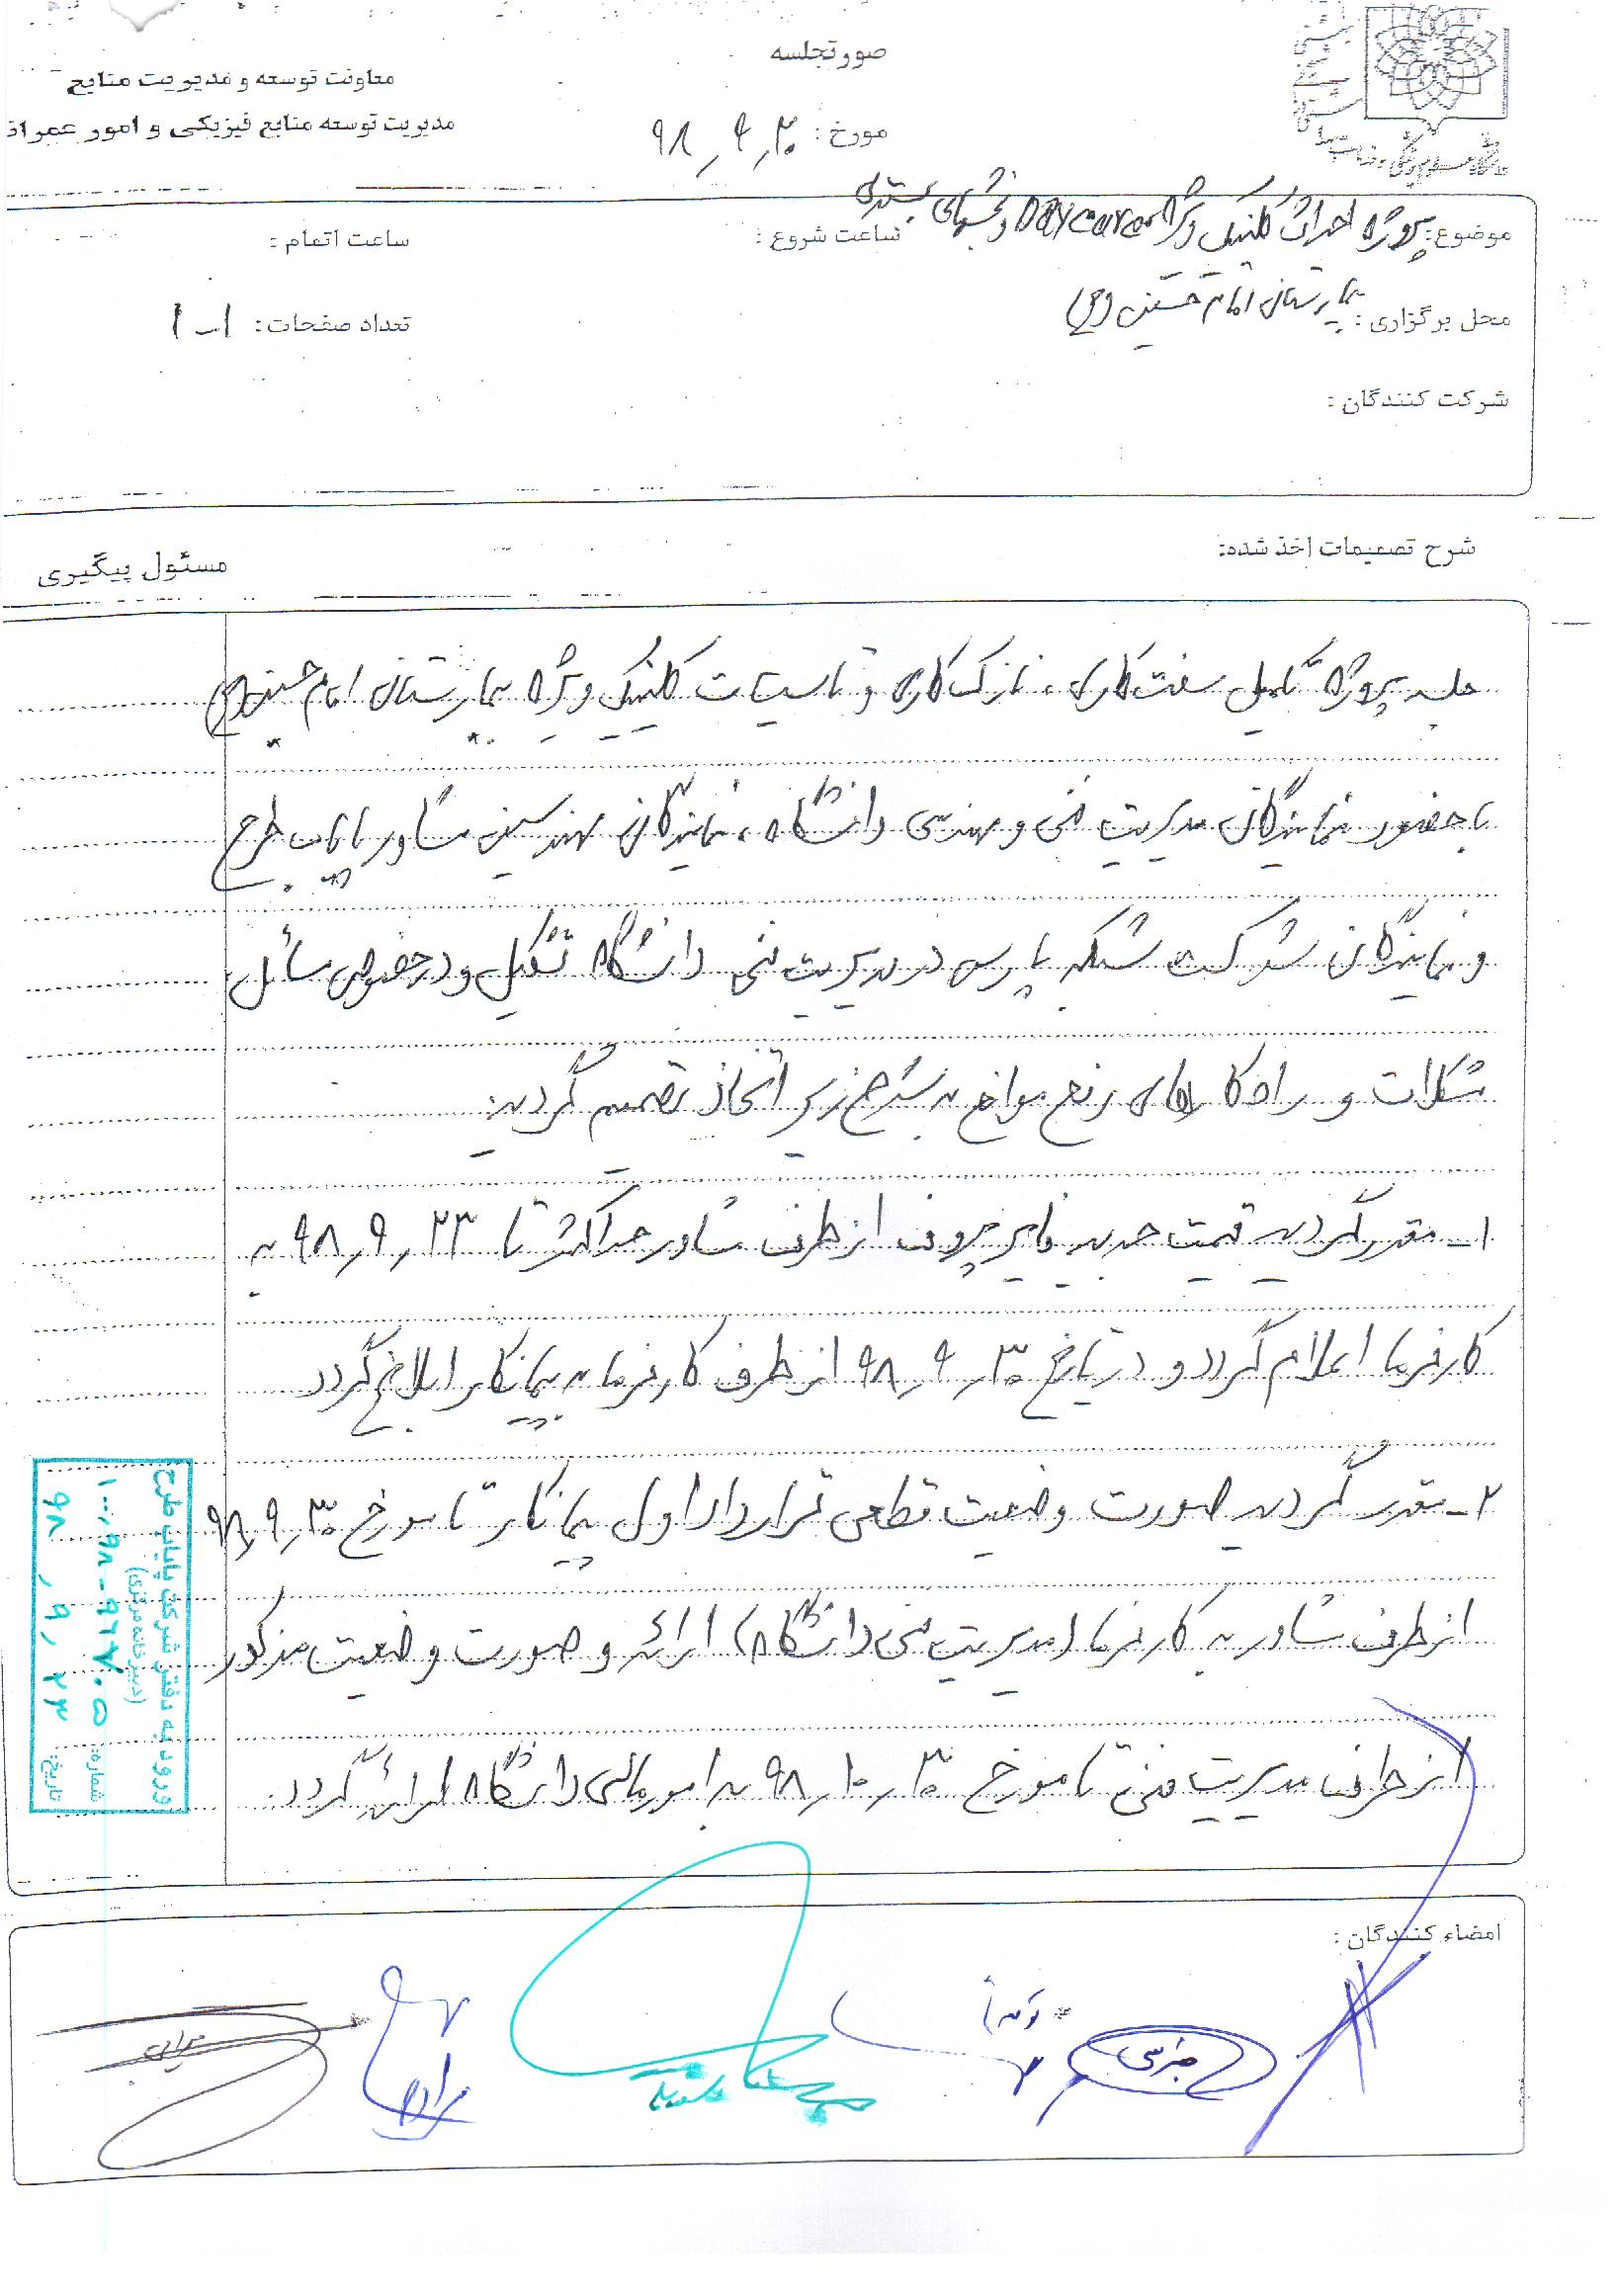 صورتجلسه
معاونت توسعه و مدیریت منابع
مدیریت توسعه منابع فیزیکی و امور عمرانی
مورخ: ۹۸٫۹٫۲۰
موضوع: پروژه احداث کلینیک ویژه Daycare و بخشهای بستری
ساعت شروع :
ساعت اتمام :
بیمارستان امام حسین (ع)
محل برگزاری :
تعداد صفحات: ۱-۱
شرکت کنندگان :
شرح تصمیمات اخذ شده:
مسئول پیگیری
جلسه پروژه تکمیل سفت کاری، نازک کاری و تاسیسات کلینیک ویژه بیمارستان امام حسین (ع)
با حضور نمایندگان مدیریت فنی و مهندسی دانشگاه، نمایندگان مهندسین مشاور پایاب طرح
و نمایندگان شرکت شبکه پارس در مدیریت فنی دانشگاه تشکیل و در خصوص مسائل
مشکلات و راه کارهای رفع موانع به شرح زیر اتخاذ تصمیم گردید:
۱- مقرر گردید قیمت جدید فایرپروف از طرف مشاور حداکثر تا ۹۸٫۹٫۲۳ به
کارفرما اعلام گردد و در تاریخ ۹۸٫۹٫۳۰ از طرف کارفرما به پیمانکار ابلاغ گردد
۲- مقرر گردید صورت وضعیت قطعی قرارداد اول پیمانکار تا مورخ ۹۸٫۹٫۳۰
از طرف مشاور به کارفرما (مدیریت فنی دانشگاه) ارائه و صورت وضعیت مذکور
از طرف مدیریت فنی تا مورخ ۹۸٫۱۰٫۳۰ به امور مالی دانشگاه ارائه گردد.
ورود به دفتر شرکت پایاب طرح
(دبیرخانه مرکزی)
شماره:
تاریخ: ۹۸٫۹٫۲۳
امضاء کنندگان :